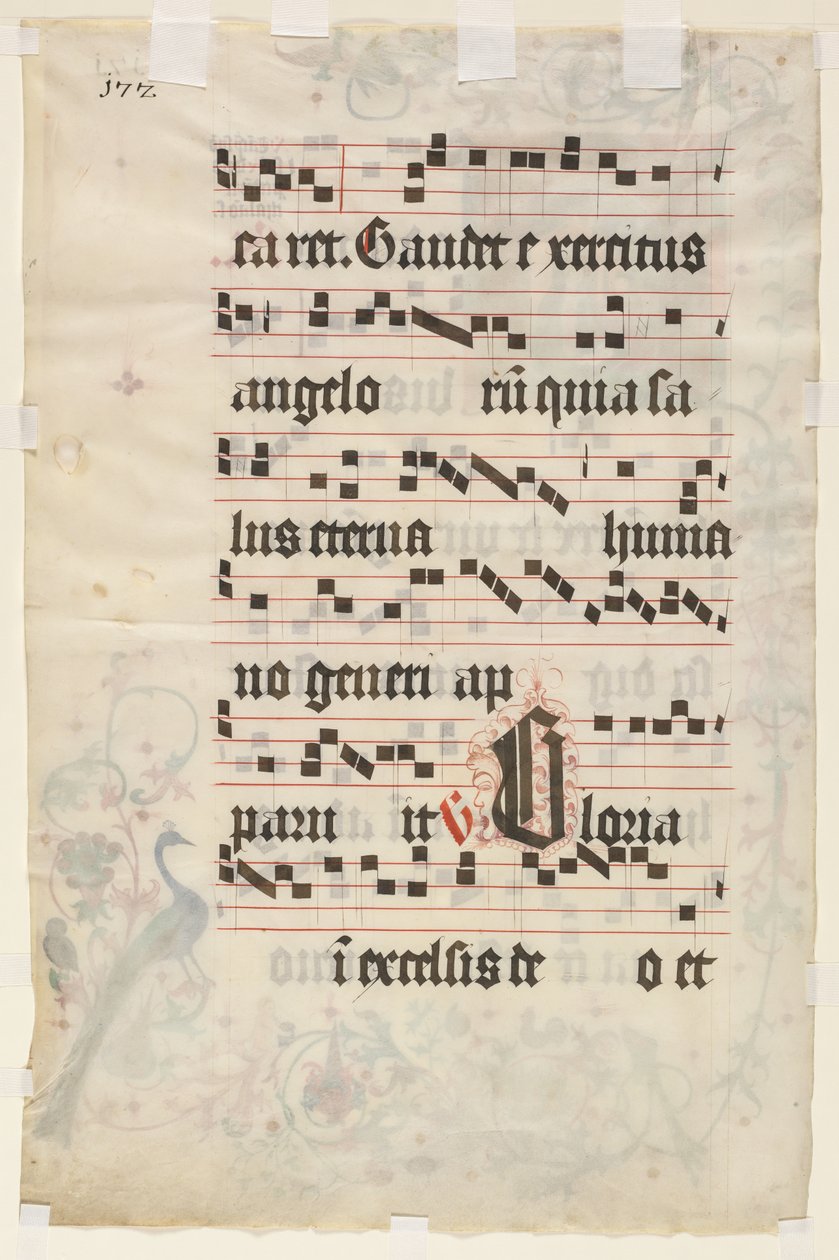 j72
ca ret. Gaudet e xercitus
angelo rū quia sa
lus eterna huma
no generi ap
paru it G Gloria
ī excelsis de o et